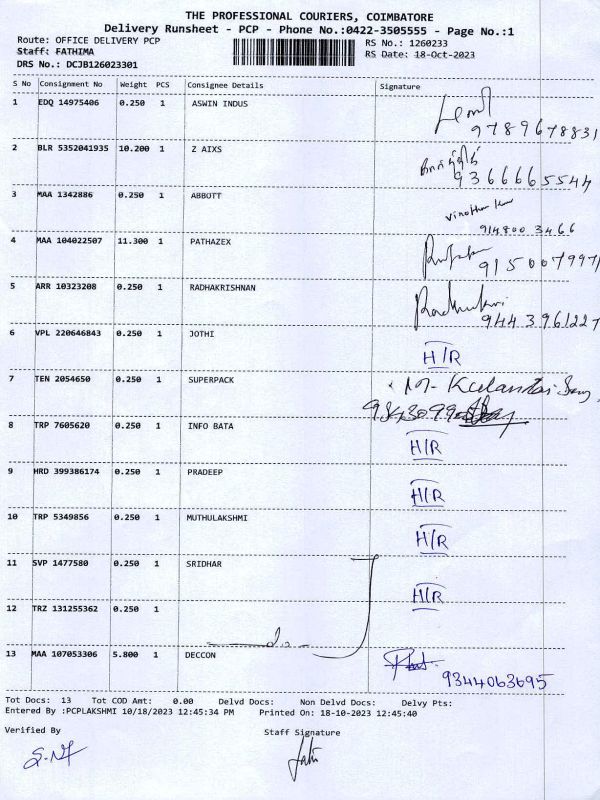 THE PROFESSIONAL COURIERS, COIMBATORE
Delivery Runsheet - PCP - Phone No.:0422-3505555 - Page No.:1
Route: OFFICE DELIVERY PCP
RS No.: 1260233
Staff: FATHIMA
RS Date: 18-Oct-2023
DRS No.: DCJB126023301
S No Consignment No Weight PCS Consignee Details Signature
1 EDQ 14975406 0.250 1 ASWIN INDUS
9789678831
2 BLR 5352041935 10.200 1 Z AIXS
9366665544
3 MAA 1342886 0.250 1 ABBOTT
914800 3466
4 MAA 104022507 11.300 1 PATHAZEX
9150079971
5 ARR 10323208 0.250 1 RADHAKRISHNAN
9443961227
6 VPL 220646843 0.250 1 JOTHI
H/R
7 TEN 2054650 0.250 1 SUPERPACK
8 TRP 7605620 0.250 1 INFO BATA
H/R
9 HRD 399386174 0.250 1 PRADEEP
H/R
10 TRP 5349856 0.250 1 MUTHULAKSHMI
H/R
11 SVP 1477580 0.250 1 SRIDHAR
H/R
12 TRZ 131255362 0.250 1
do
13 MAA 107053306 5.800 1 DECCON
9344063695
Tot Docs: 13 Tot COD Amt: 0.00 Delvd Docs: Non Delvd Docs: Delvy Pts:
Entered By :PCPLAKSHMI 10/18/2023 12:45:34 PM Printed On: 18-10-2023 12:45:40
Verified By Staff Signature